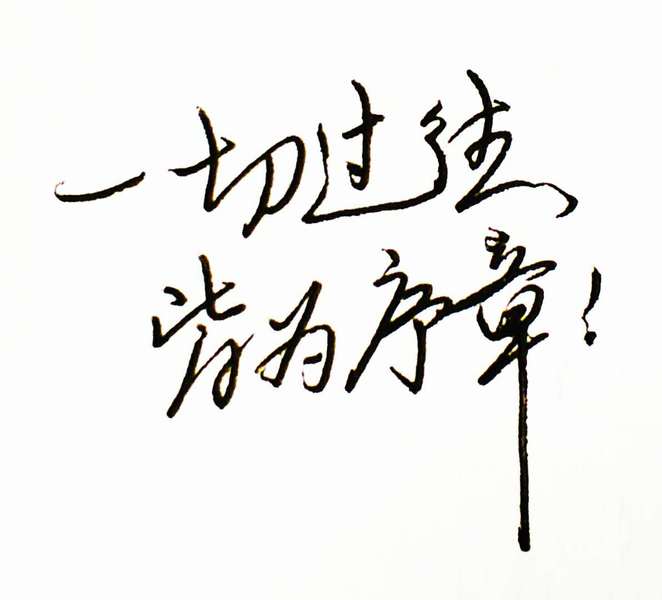 一切过往
皆为序章！